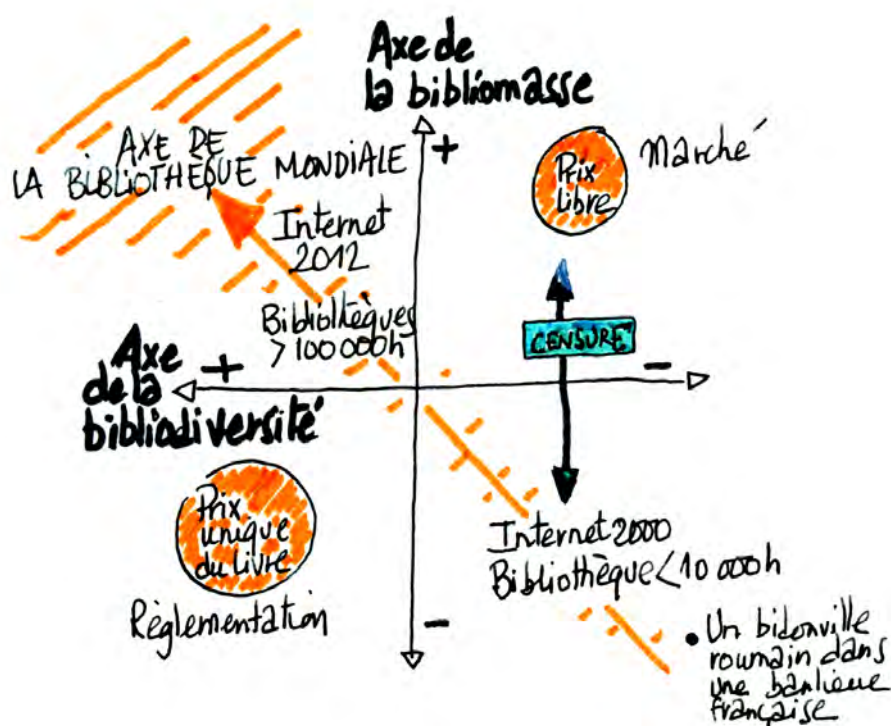 Axe de
la bibliomasse
AXE DE
LA BIBLIOTHÈQUE MONDIALE
+
Prix
libre
Marché
Internet
2012
Bibliothèques
> 100 000h
CENSURE
Axe
de la
bibliodiversité
+
-
Prix
unique
du livre
Règlementation
-
Internet 2000
Bibliothèque < 10 000h
• Un bidonville
roumain dans
une banlieue
française